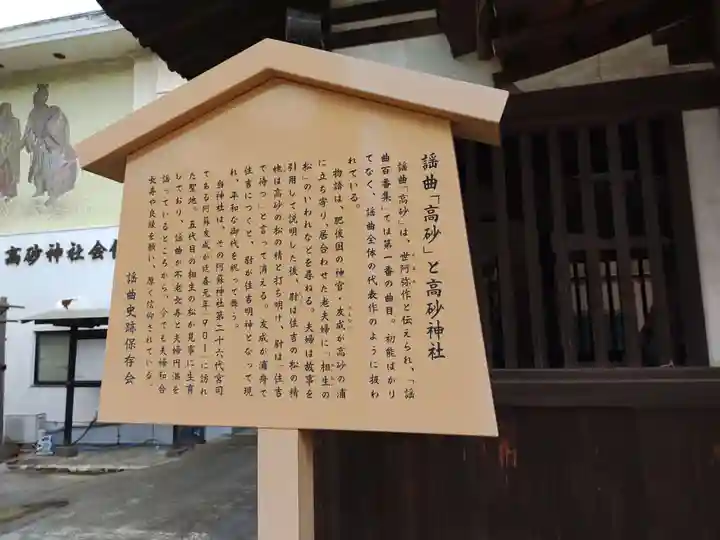 謡曲「高砂」と高砂神社
謡曲「高砂」は、世阿弥作と伝えられ、「謡
曲百番集」では第一番の曲目。初能ばかり
てなく、謡曲全体の代表作のように扱わ
れている。
物語は、肥後国の神官・友成が高砂の浦
に立ち寄り、居合わせた老夫婦に「相生の
松」のいわれなどを尋ねる。夫婦は故事を
引用して説明した後、尉は住吉の松の精
姥は高砂の松の精と打ち明け、尉は「住吉
で待つ」と言って消える。友成が浦舟で
住吉につくと、尉が住吉明神となって現
れ、平和な御代を祝って舞う。
当神社は、その阿蘇神社第二十六代宮司
である阿蘇友成が延喜元年(901)に訪れ
た聖地。五代目の相生の松が見事に生育
しており、謡曲が不老長寿と夫婦円満を
謡っているところから、今でも夫婦和合
長寿や良縁を願い、厚く信仰されている。
謡曲史跡保存会
高砂神社会